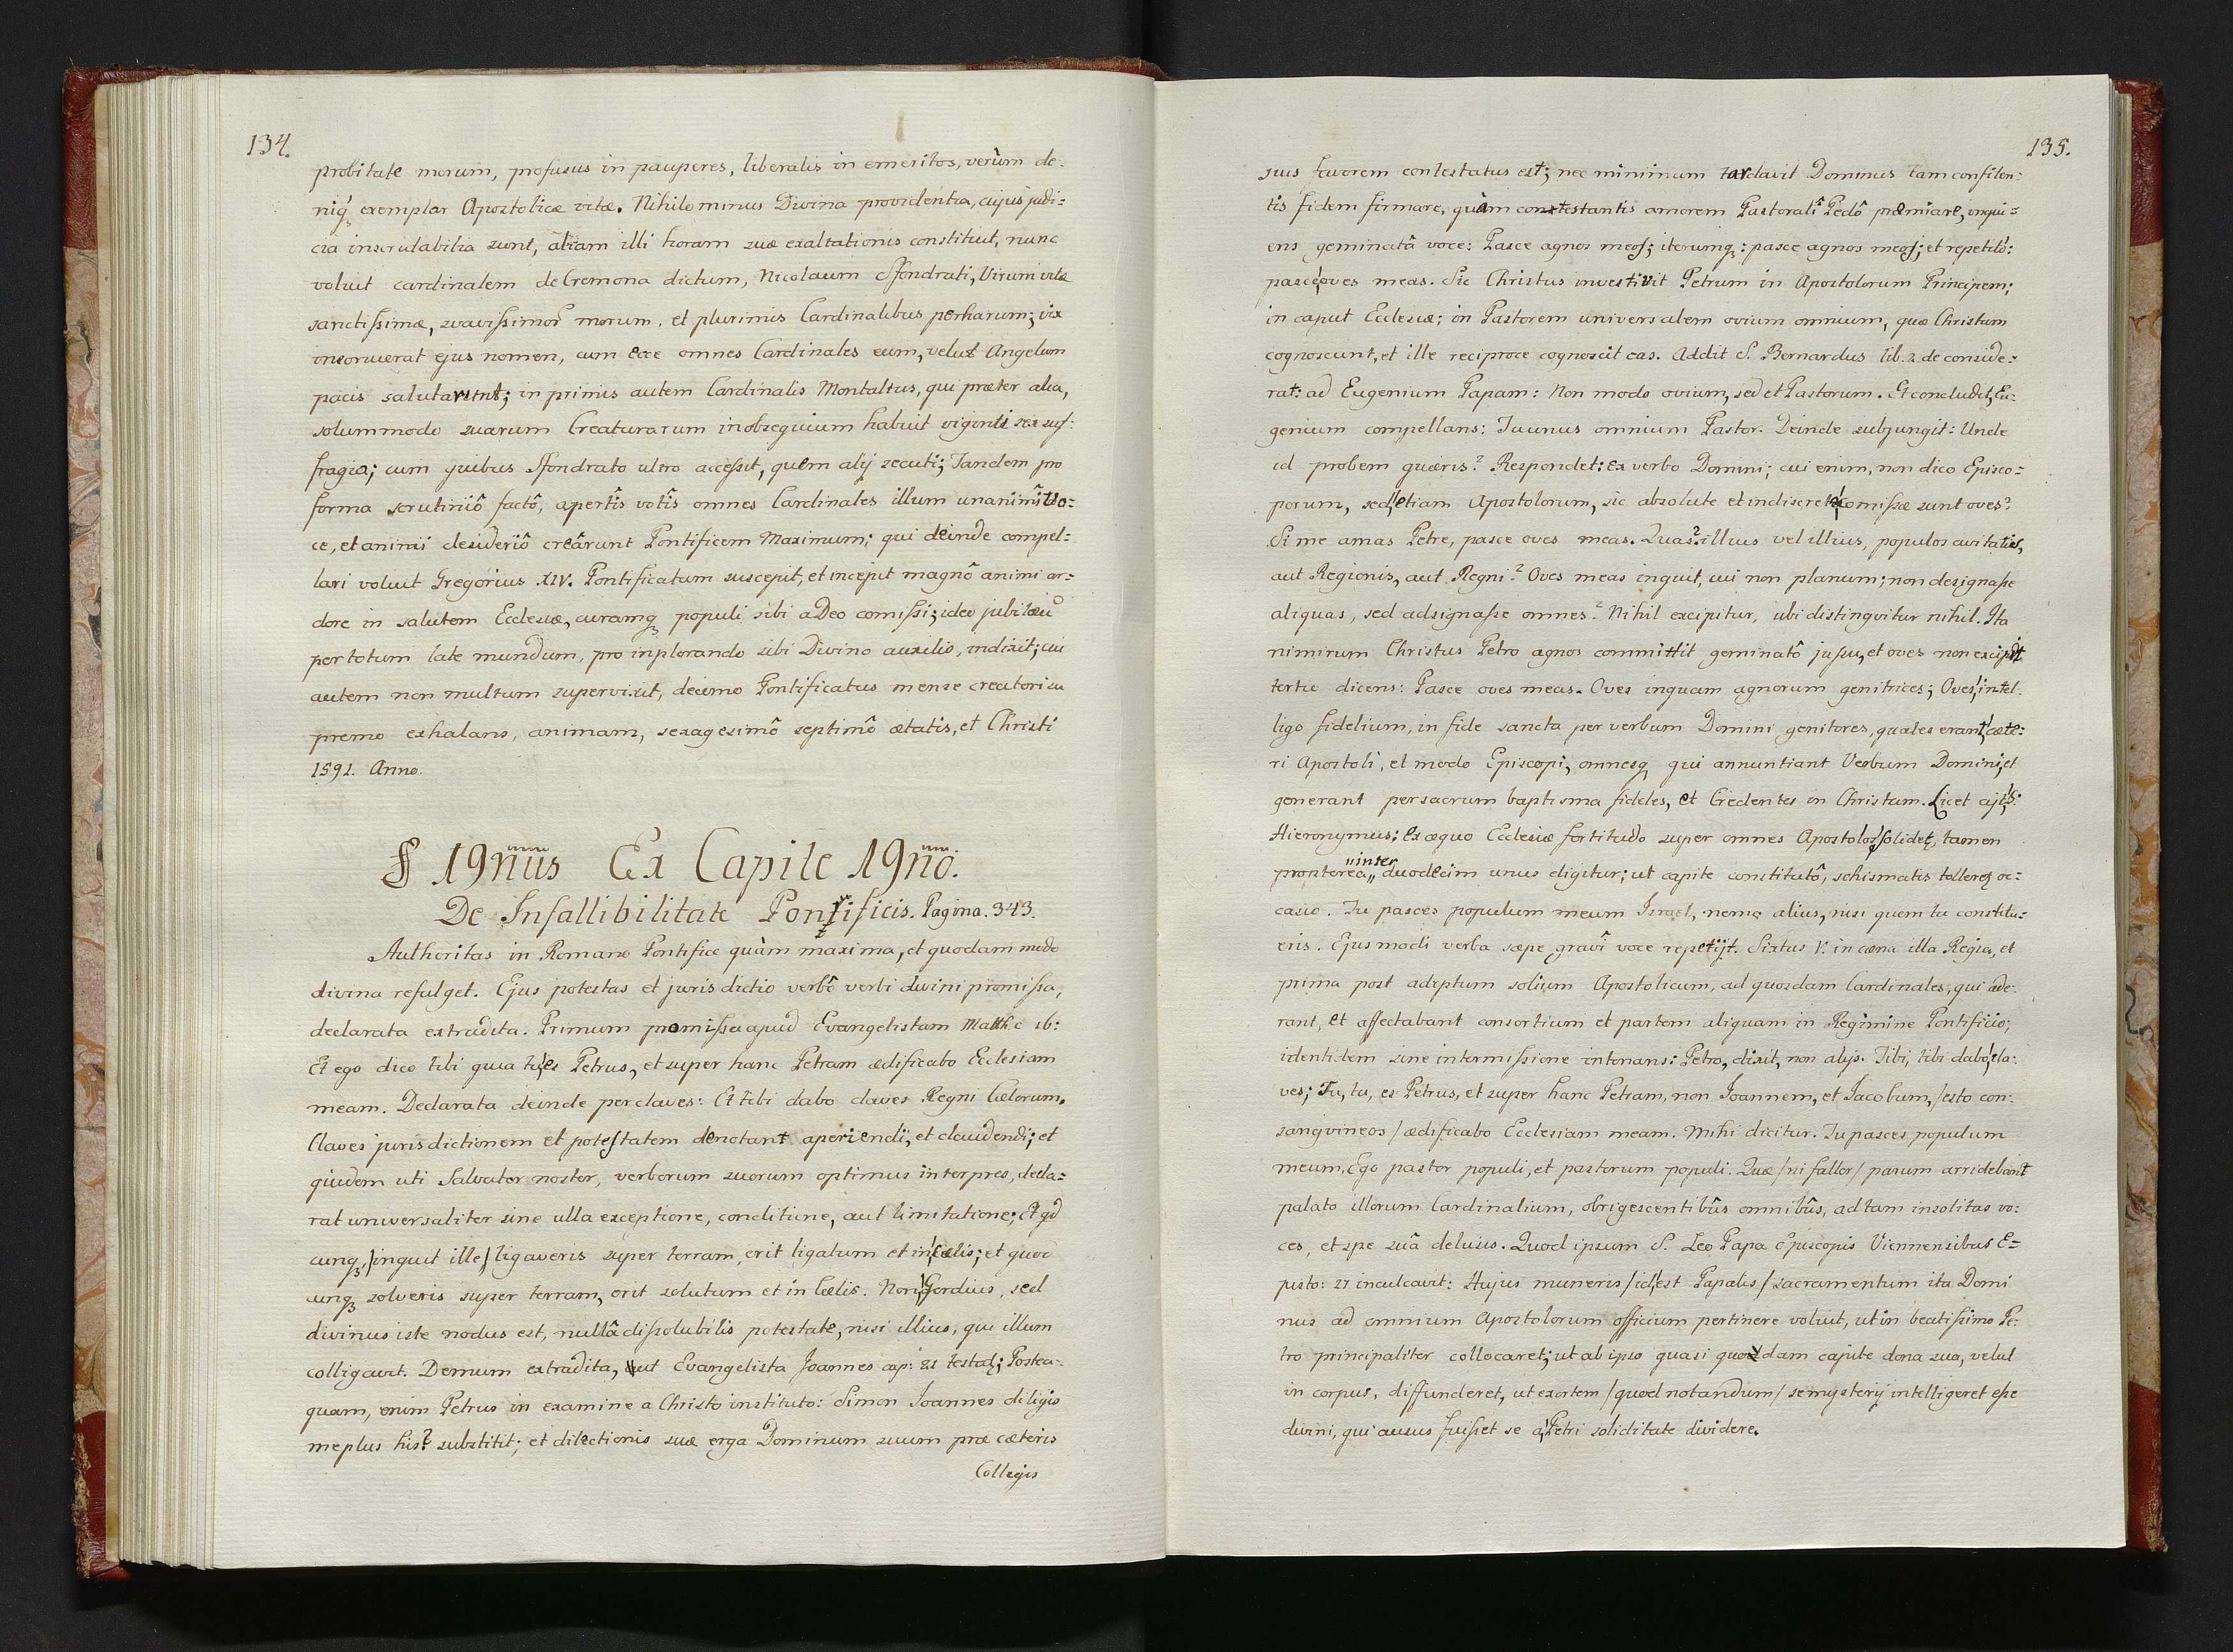 134.
probitate morum, profusus in pauperes, liberalis in emeritos, verùm de-
niq́ exemplar Apostolicæ vitæ. Nihilominus Divina providentia, cujus judi-
cia inscrutabilia sunt, aliam illi horam suæ exaltationis constituit, nunc
voluit cardinalem de Cremona dictum, Nicolaum Sfondrati, Virum vitæ
sanctissimæ, suavissimor̃ morum, et plurimis Cardinalibus percharum; vix
insonuerat ejus nomen, cum ecce omnes Cardinales eum, velut Angelum
pacis salutarunt; in primis autem Cardinalis Montaltus, qui præter alia,
solummodo suarum Creaturarum in obsequium habuit viginti sex suf-
fragia; cum quibus Sfondrato ultro accessit, quem alij secuti; Tandem pro
forma scrutiniô factô, apertîs votîs omnes Cardinales illum unanimî vo-
ce, et animi desideriô creârunt Pontificem Maximum; qui deinde compel-
lari voluit Gregorius XIV. Pontificatum suscepit, et incepit magnô animi ar-
dore in salutem Ecclesiæ, curamq populi sibi a Deo comissi; ideo jubilæũ
per totum late mundum, pro inplorando sibi Divino auxilio, indixit; cui
autem non multum supervixit, decimo Pontificatus mense creatori su
premo exhalans, animam, sexagesimô septimô ætatis, et Christi
1591. Anno.
§ 19nus Ex Capite 19no.
De Infallibilitate Pontificis. Pagina. 343.
Authoritas in Romano Pontifice quàm maxima, et quodam modo
divina refulget. Ejus potestas et jurisdictio verbô verbi divini promissa,
declarata et tradita. Primum promissa apud Evangelistam Matth: c 16:
Et ego dico tibi quia tu es Petrus, et super hanc Petram ædificabo Ecclesiam
meam. Declarata deinde per claves: Et tibi dabo claves Regni Cælorum.
Claves jurisdictionem et potestatem denotant aperiendi, et claudendi; et
quidem uti Salvator noster, verborum suorum optimus interpres, decla-
rat universaliter sine ulla exceptione, conditione, aut limitatione; Et qd
cunq, /inquit ille/ ligaveris super terram, erit ligatum et in cælis; et quod
cunq solveris super terram, erit solutum et in Cælis. Non Gordius, sed
divinus iste nodus est, nullâ dissolubilis potestate, nisi illius, qui illum
colligavit. Demum et tradita, ut Evangelista Joannes cap: 21 testat; Postea-
quam, enim Petrus in examine a Christo instituto: Simon Joannes diligis
me plus his? substitit; et dilectionis suæ erga Dominum suum præ cæteris
Collegis
135.
suis favorem contestatus est; nec minimum tardavit Dominus tam confiten-
tis fidem firmare, quàm contestantis amorem Pastoralî Pedô præmiare, inqui-
ens geminatâ voce: Pasce agnos meos; iterumq: pasce agnos meos; et repetitô:
pasce oves meas. Sic Christus investivit Petrum in Apostolorum Principem;
in caput Ecclesiæ; in Pastorem universalem ovium omnium, quæ Christum
cognoscunt, et ille reciproce cognoscit eas. Addit S. Bernardus lib. 2. de conside-
rat: ad Eugenium Papam: Non modo ovium, sed et Pastorum. Et concludit, Eu-
genium compellans: Tu unus omnium Pastor. Deinde subjungit: Unde
id probem quæris? Respondet: ex verbo Domini; cui enim, non dico Episco-
porum, sed etiam Apostolorum, sic absolute et indiscrete comissæ sunt oves?
Si me amas Petre, pasce oves meas. Quas? illius vel illius, populos civitatis,
aut Regionis, aut Regni? Oves meas inquit, cui non planum; non designasse
aliquas, sed adsignasse omnes? Nihil excipitur, ubi distingvitur nihil. Ita
nimirum Christus Petro agnos committit geminatô jussu, et oves non excipit
tertio dicens: Pasce oves meas. Oves inquam agnorum genitrices; Oves, intel-
ligo fidelium, in fide sancta per verbum Domini genitores, quales erant cæte-
ri Apostoli, et modo Episcopi, omnesq qui annuntiant Verbum Domini, et
generant per sacrum baptisma fideles, et Credentes in Christum. Licet ajt S:
Hieronymus: ex æquo Ecclesiæ fortitudo super omnes Apostolos solidet, tamen
propterea „inter„ duodecim unus eligitur; ut capite constitutô, schismatis tolleret oc-
casio. Tu pasces populum meum Israel, nemo alius, nisi quem tu constitu-
eris. Ejusmodi verba sæpe gravî voce repetijt. Sixtus V. in cæna illa Regia, et
prima post adeptum solium Apostolicum, ad quosdam Cardinales, qui ade-
rant, et affectabant consortium et partem aliquam in Regimine Pontificio;
identidem sine intermissione intonans: Petro, dixit, non alys. Tibi, tibi dabo cla-
ves; Tu, tu, es Petrus, et super hanc Petram, non Joannem, et Jacobum, /esto con-
sangvineos/ ædificabo Ecclesiam meam. Mihi dicitur. Tu pasces populum
meum, Ego pastor populi, et pastorum populi. Quæ /ni fallor/ parum arridebant
palato illorum Cardinalium, obrigescentibûs omnibûs, ad tam insolitas vo-
ces, et spe suâ delusis. Quod ipsum S. Leo Papa Episcopis Viennensibus E-
pisto: 27 inculcavit: Hujus muneris /id est Papalis/ sacramentum ita Domi
nus ad omnium Apostolorum officium pertinere voluit, ut in beatissimo Pe-
tro principaliter collocaret; ut ab ipso quasi quodam capite dona sua, velut
in corpus, diffunderet, ut exortem /quod notandum/ se mysterij intelligeret esse
divini, qui ausus fuisset se a Petri soliditate dividere.